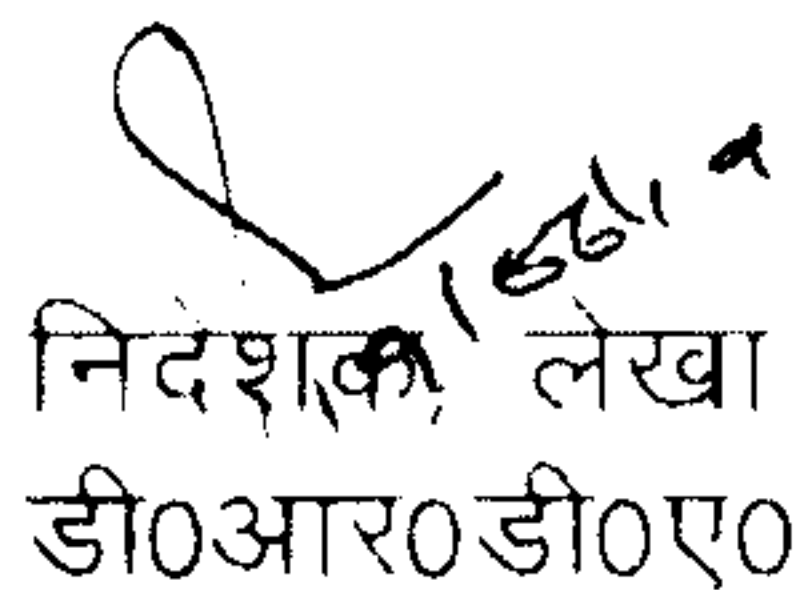 निदेशक लेखा
डी0आर0डी0ए0